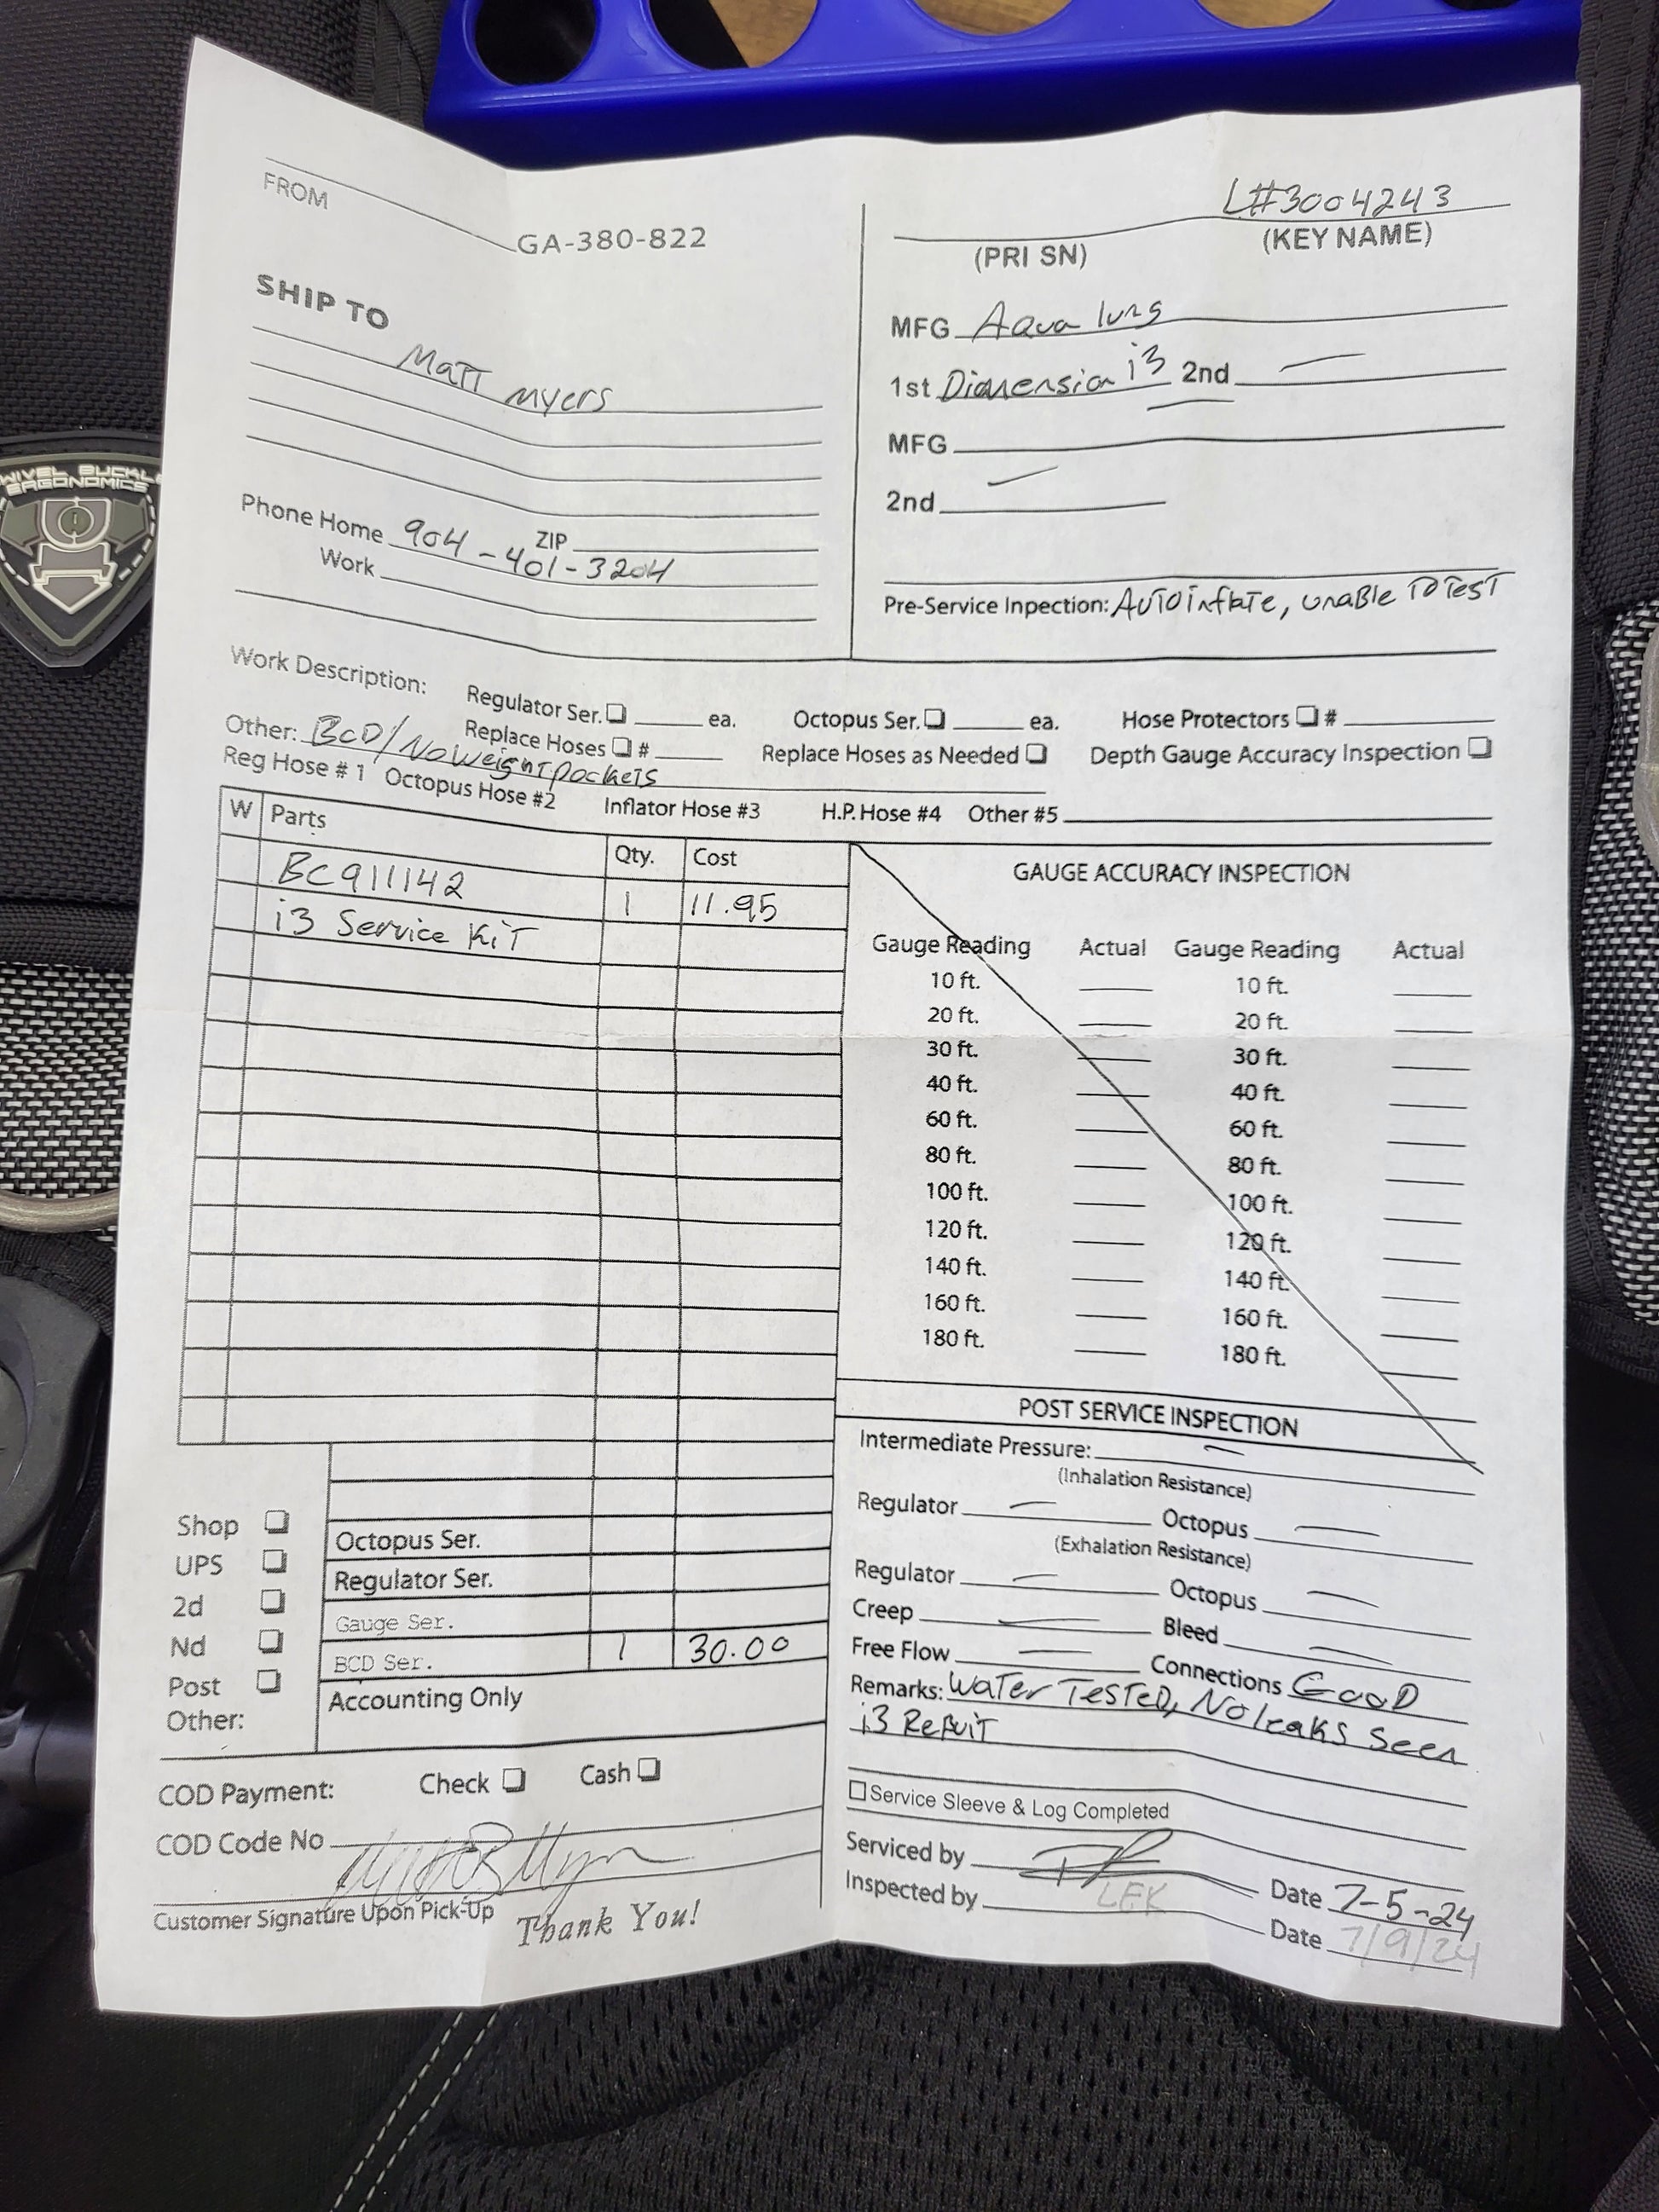 FROM
GA-380-822
L#3004243
(PRI SN) (KEY NAME)
SHIP TO
Matt Myers
MFG Aqua lung
1st Dimension i3 2nd —
MFG
2nd —
Phone Home 904-401-3204 ZIP
Work
Pre-Service Inpection: AUTOinflate, unable To Test
Work Description: Regulator Ser. ea. Octopus Ser. ea. Hose Protectors #
Other: BCD/No weight pockets Replace Hoses # Replace Hoses as Needed Depth Gauge Accuracy Inspection
Reg Hose # 1 Octopus Hose #2 Inflator Hose #3 H.P. Hose #4 Other #5
W Parts Qty. Cost
BC911142 1 11.95
i3 Service KiT
GAUGE ACCURACY INSPECTION
Gauge Reading Actual Gauge Reading Actual
10 ft. 10 ft.
20 ft. 20 ft.
30 ft. 30 ft.
40 ft. 40 ft.
60 ft. 60 ft.
80 ft. 80 ft.
100 ft. 100 ft.
120 ft. 120 ft.
140 ft. 140 ft.
160 ft. 160 ft.
180 ft. 180 ft.
POST SERVICE INSPECTION
Intermediate Pressure: —
(Inhalation Resistance)
Regulator — Octopus —
(Exhalation Resistance)
Regulator — Octopus —
Creep — Bleed —
Free Flow — Connections Good
Remarks: Water Tested, No leaks Seen
i3 Rebuit
Service Sleeve & Log Completed
Serviced by Date 7-5-24
Inspected by LFK Date 7/9/24
Shop
UPS
2d
Nd
Post
Other:
Octopus Ser.
Regulator Ser.
Gauge Ser.
BCD Ser. 1 30.00
Accounting Only
COD Payment: Check Cash
COD Code No
Customer Signature Upon Pick-Up
Thank You!
SWIVEL BUCKLE
ERGONOMICS